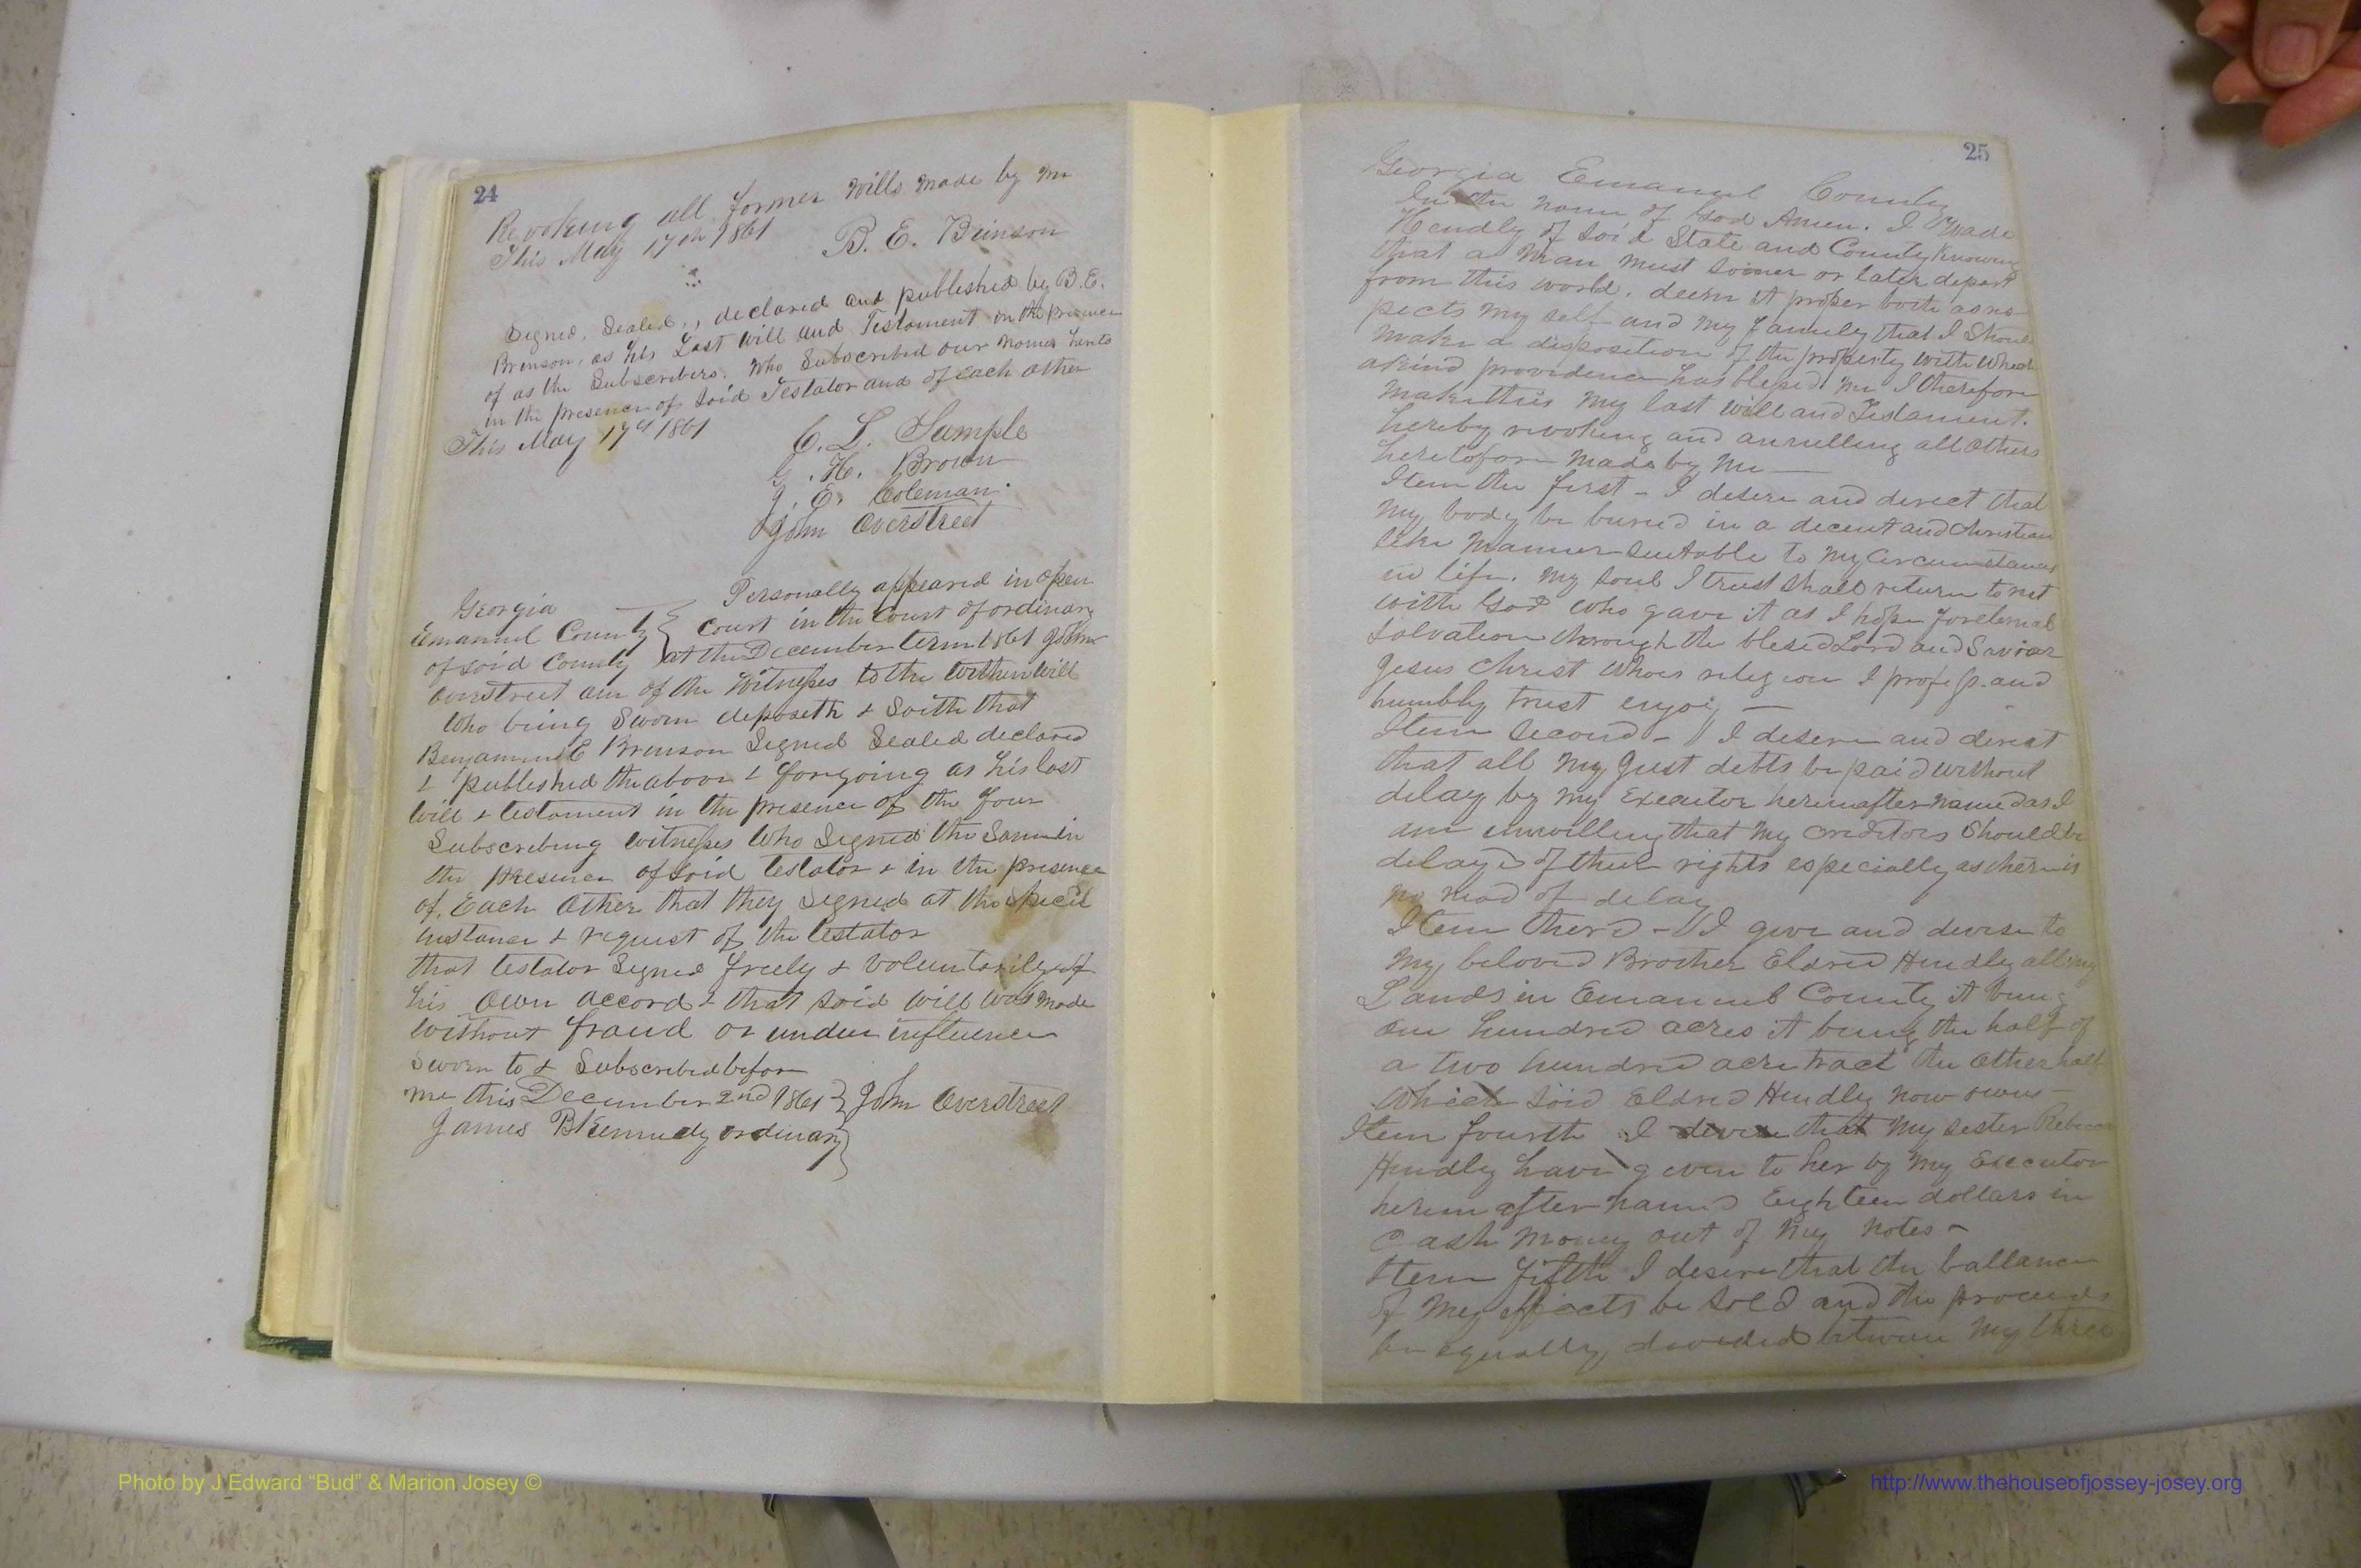 24
Revoking all former Wills Made by Me
This May 17th 1861
B. E. Brinson
Signed, Sealed, declared and published by B. E.
Brinson, as his Last Will and Testament in the Presence
of as the Subscribers. Who Subscribed our Names hereto
in the presence of said Testator and of each other
This May 17th 1861
C. L. Sample
G. H. Brown
J. E. Coleman
John Overstreet
Personally appeared in open
Georgia
Emanuel County } Court in the Court of ordinary
of said County at the December term 1861 John
Overstreet one of the Witnesses to the Within Will
Who being Sworn deposeth & Saith that
Benjamin E Brinson Signed Sealed declared
& published the above & forgoing as his last
Will & testament in the presence of the four
Subscribing Witnesses Who Signed the Same in
the presence of said testator & in the presence
of Each Other that they Signed at the
instance & request of the testator
that testator Signed freely & Voluntarily of
his Own accord & that said Will was Made
Without fraud or under influence
Sworn to & Subscribed before
me this December 2nd 1861 } John Overstreet
James B Kennedy ordinary }
25
Georgia Emanuel County
In the name of God Amen. I
Hendly of Said State and County Knowing
that a Man Must Sooner or later depart
from this world. deem it proper both as res-
pects My self and My family that I Should
Make a disposition of the property with Which
a kind providence has blessed Me I therefore
Make this My last Will and Testament.
hereby revoking and annulling all Others
heretofore Made by Me —
Item the first - I desire and direct that
My body be buried in a decent and Christian
like Manner Suitable to My Circumstances
in life. My Soul I trust Shall return to rest
With God Who gave it as I hope for eternal
Salvation through the blesed Lord and Savior
Jesus Christ Whoes religion I profess and
humbly trust enjoy —
Item Second - I desire and direct
that all My Just debts be paid without
delay by My Executor hereinafter named as I
am unwilling that My Creditors Should be
delayed of their rights especially as there is
no need of delay
Item therd - I give and devise to
My beloved Brother Eldred Hendly all my
Lands in Emanuel County it being
one hundred acres it being the half of
a two hundred acre tract the Other half
Which Said Eldred Hendly Now owns —
Item fourth I that My Sister Rebecca
Hendly have given to her by My Executor
herein after Named Eighteen dollars in
Cash Money out of My Notes -
Item fifth I desire that the ballance
of My effects be Sold and the proceeds
be equally devided between My three
Photo by J Edward “Bud” & Marion Josey ©
http://www.thehouseofjossey-josey.org